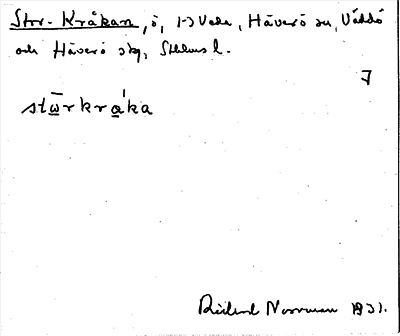 Stor-Kråkan, ö, 1-3 Veda, Häverö sn, Väddö
och Häverö skg, Sthlms l.
7
stω̄rkrɑ́ka
Rickard Norrman 1931.